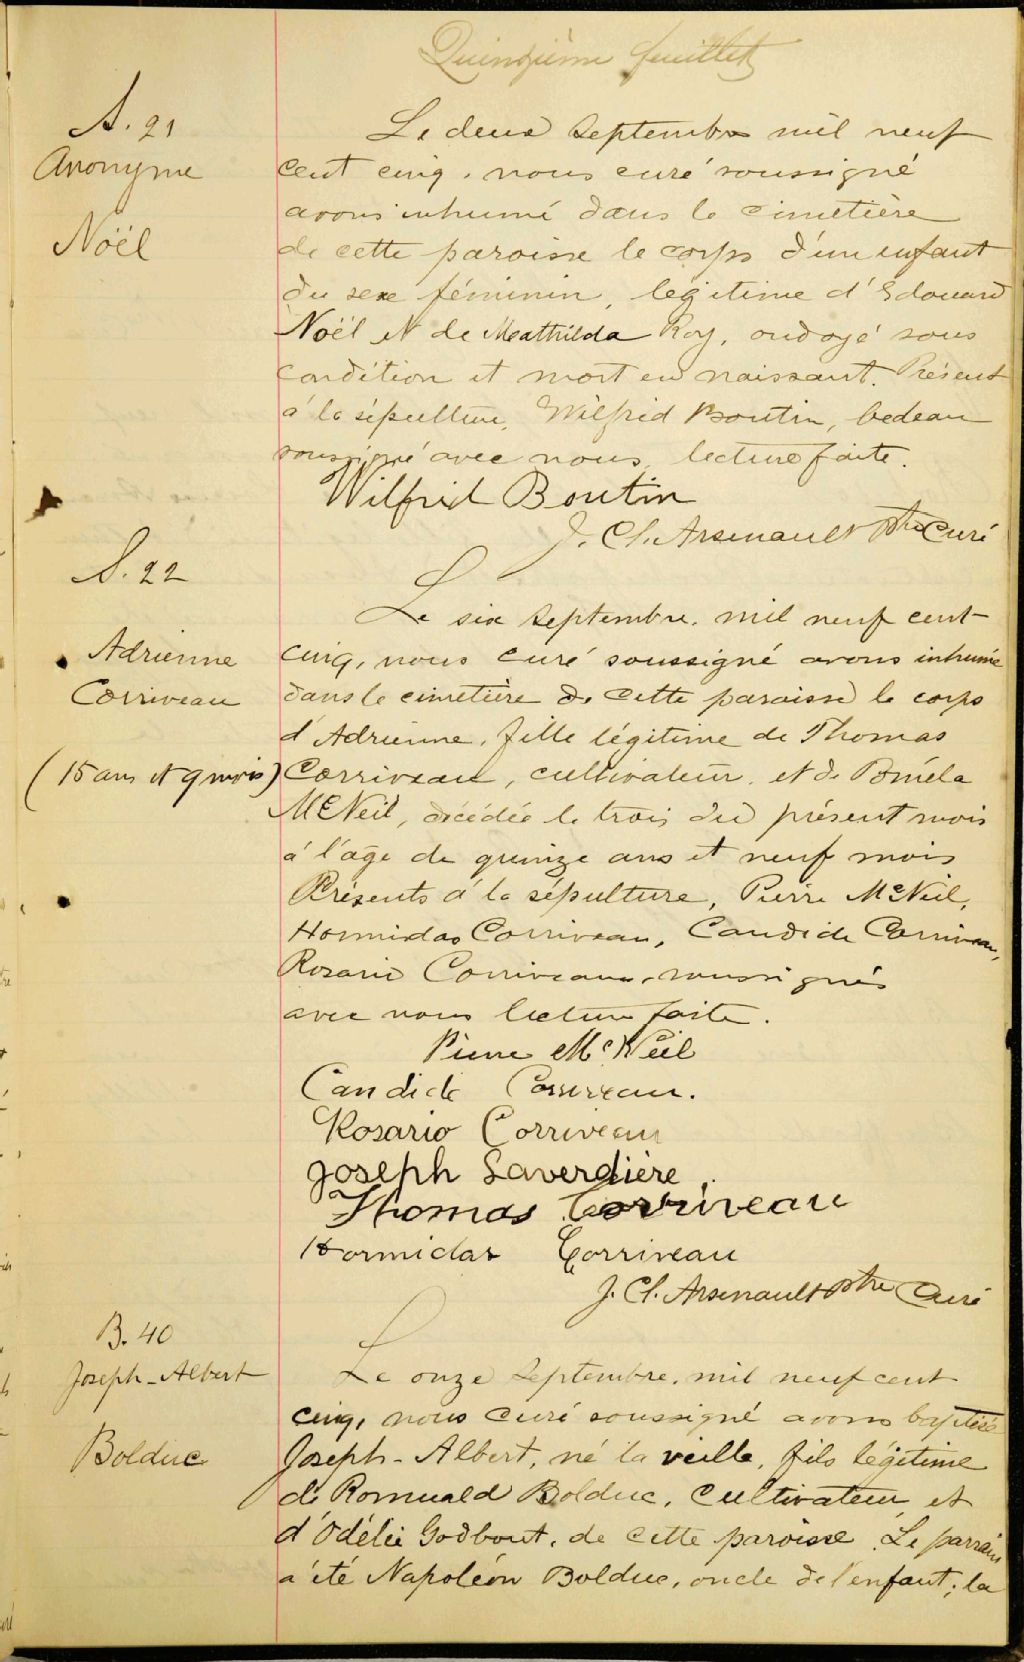 Quinzième feuillet
S. 21
Anonyme
Noël
Le deux septembre mil neuf
cent cinq, nous curé soussigné
avons inhumé dans le cimetière
de cette paroisse le corps d'un enfant
du sexe féminin, légitime d'Edouard
Noël et de Mathilda Roy, ondoyé sous
condition et mort en naissant. Présent
à la sépulture, Wilfrid Boutin, bedeau
soussigné avec nous, lecture faite.
Wilfrid Boutin
J. Cl. Arsenault Ptre Curé
S. 22
Adrienne
Corriveau
(15 ans et 9 mois)
Le six septembre, mil neuf cent
cinq, nous curé soussigné avons inhumé
dans le cimetière de cette paroisse le corps
d'Adrienne, fille légitime de Thomas
Corriveau, cultivateur, et de Paméla
McNeil, décédée le trois du présent mois
à l'âge de quinze ans et neuf mois
Présents à la sépulture, Pierre McNeil,
Hormidas Corriveau, Candide Corriveau,
Rosario Corriveau, soussignés
avec nous lecture faite.
Pierre McNeil
Candide Corriveau.
Rosario Corriveau
Joseph Laverdière
Thomas Corriveau
Hormidas Corriveau
J. Cl. Arsenault Ptre Curé
B. 40
Joseph-Albert
Bolduc
Le onze septembre, mil neuf cent
cinq, nous curé soussigné avons baptisé
Joseph-Albert, né la veille, fils légitime
de Romuald Bolduc, cultivateur, et
d'Odélie Godbout, de cette paroisse. Le parrain
a été Napoléon Bolduc, oncle de l'enfant; la